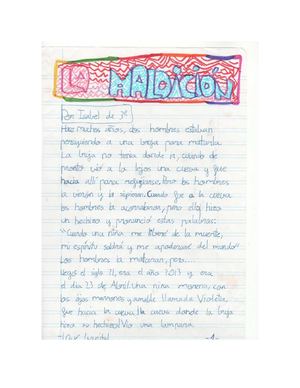 LA MALDICIÓN
Por Isabel de 3º
Hace muchos años, dos hombres estaban
persiguiendo a una bruja para matarla.
La bruja no tenía donde ir, cuando de
pronto vio a lo lejos una cueva y fue
hacia allí para refugiarse, pero los hombres
la vieron y la siguieron. Cuando fue a la cueva
los hombres la acorralaron, pero ella hizo
un hechizo y pronunció estas palabras:
"Cuando una niña me libere de la muerte,
mi espíritu saldrá y me apoderaré del mundo"
Los hombres la mataron, pero....
Llegó el siglo 21, era el año 2013 y era
el día 23 de Abril. Una niña morena, con
los ojos marrones y amable llamada Violeta,
fue hacia la cueva la cueva donde la bruja
hizo su hechizo! Vio una lampara
-1-